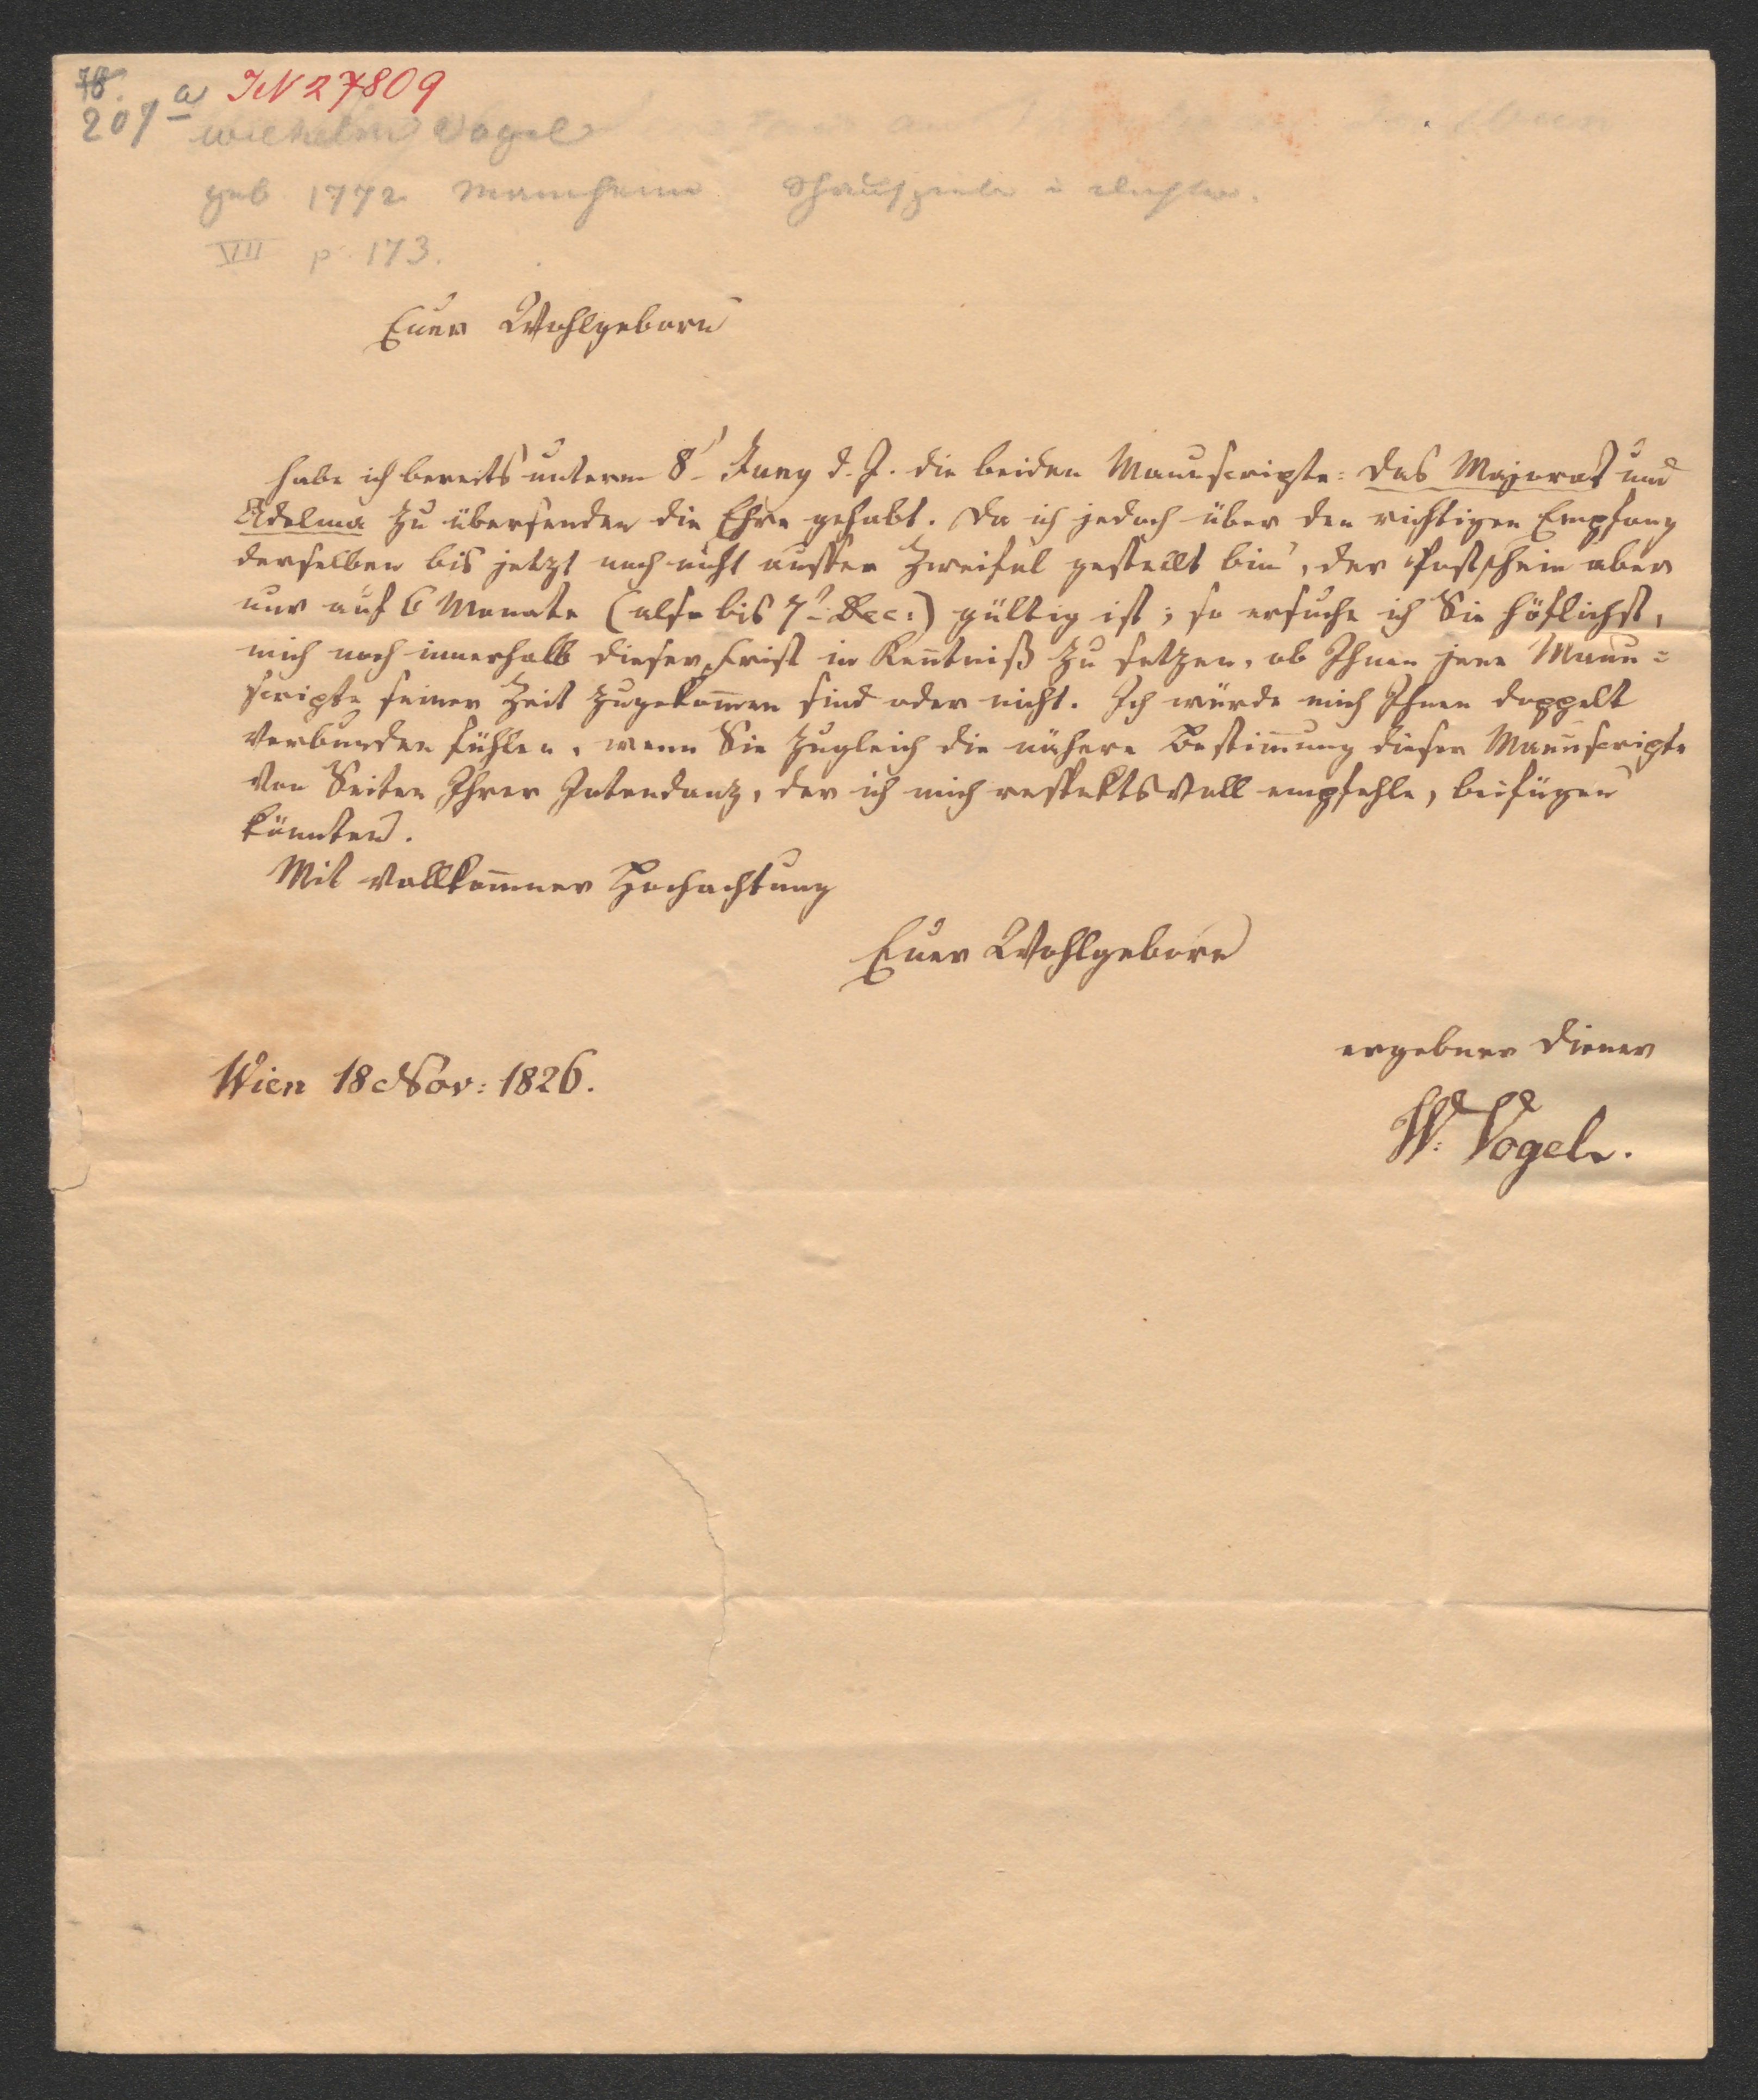 78.
207 a JN 27809
Wilhelm Vogel
geb. 1772 Mannheim Schauspieler u Dichter.
VII p. 173.
Euer Wohlgeborn
habe ich bereits unterm 8t Juny d. J. die beiden Manuscripte: das Majorat und
Adelma zu übersenden die Ehre gehabt. Da ich jedoch über den richtigen Empfang
derselben bis jetzt noch nicht ausser Zweifel gestellt bin, der Postschein aber
nur auf 6 Monate (also bis 7t Dec:) gültig ist; so ersuche ich Sie höflichst,
mich noch innerhalb dieser Frist in Kenntniß zu setzen, ob Ihnen jene Manu=
scripte seiner Zeit zugekom̅en sind oder nicht. Ich würde mich Ihnen doppelt
verbunden fühlen, wenn Sie zugleich die nähere Bestim̅ung dieser Manuscripte
von Seiten Ihrer Intendanz, der ich mich respektsvoll empfehle, beifügen
könnten.
Mit vollkom̅ner Hochachtung
Euer Wohlgeborn
ergebner Diener
Wien 18 Nov: 1826.
W: Vogel.